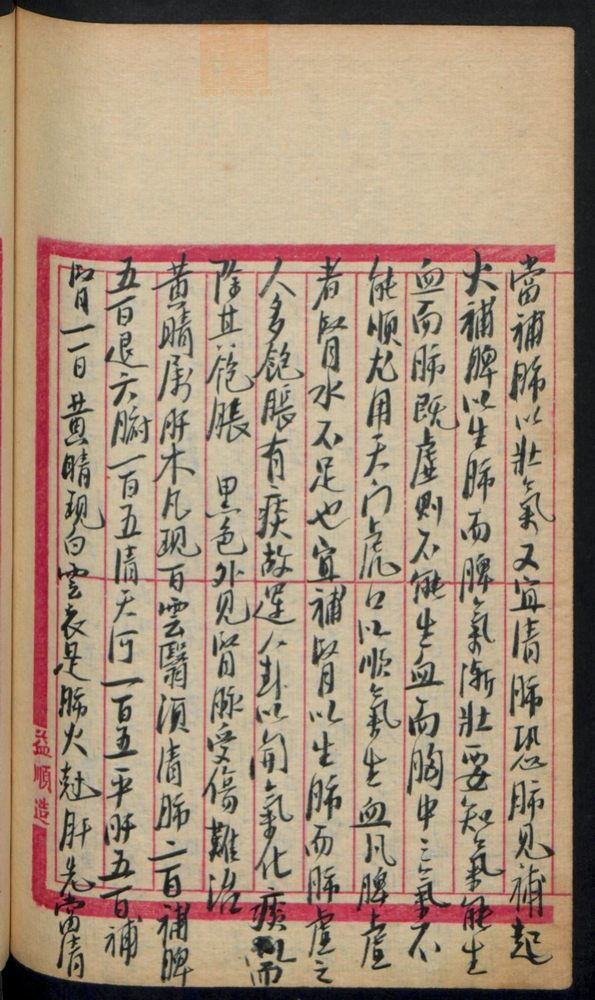 當補肺以壯氣又宜清肺恐肺見補起
火補脾以生肺而脾氣漸壯要知氣能生
血而肺既虛則不能生血而胸中之氣不
能順尤用天门虎口以順氣生血凡脾虛
者腎水不足也宜補腎以生肺而肺虛之
人多飽脹有痰故運八卦以開氣化痰而
除其飽脹 黑色外見腎脉受傷難治
黃睛屬肝木凡現白雲翳須清肺二百補脾
五百退六腑一百五清天河一百五平肝五百補
腎一百 黃睛現白雲衣是肺火尅肝先當清
益順造